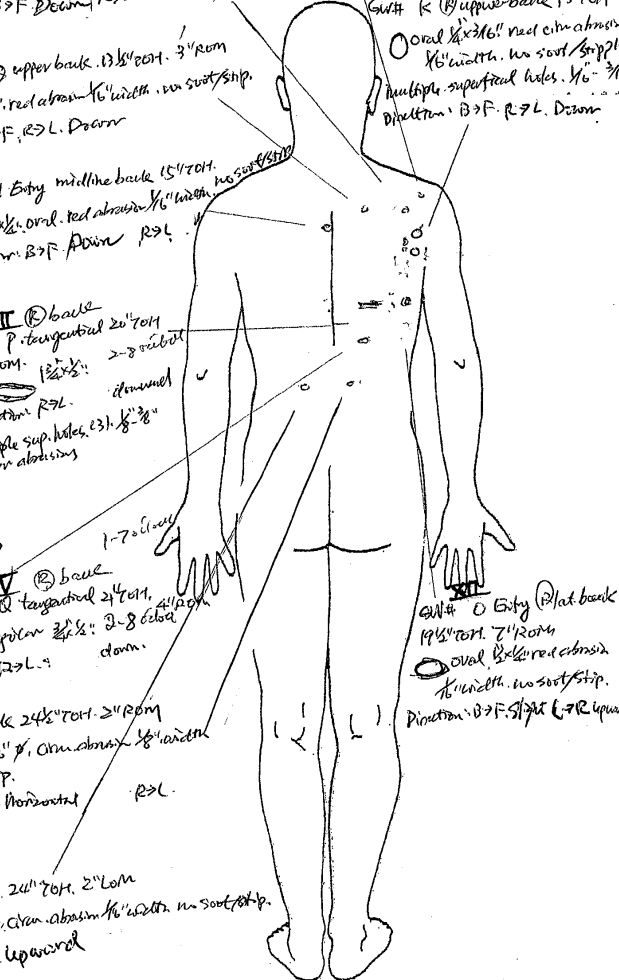 B>F. Down
upper back. 13½" TOH. 3" ROM
red abrasion 1/16" width. no soot/stip.
F. R>L. Down
Entry midline back 15" TOH.
¼". oval. red abrasion 1/16" width. no soot/stip
B>F. Down R>L.
II Ⓡ back
P. tangential 20" TOH
2-8 o'clock
1¾x½"
downward
R>L.
sup. holes. (3). ⅛-⅜"
abrasions
1-7 o'clock
V Ⓡ back
Q tangential 21" TOH. 4" ROM
¾x½". 2-8 o'clock
R>L. down.
24½" TOH. 2" ROM
circum. abrasion ⅛" width
Horizontal R>L.
24" TOH. 2" LOM
circum. abrasion 1/16" width no soot/stip.
upward
GW# K Ⓡ upper back
oval ¼"x3/16" red circum abrasion
1/16" width. no soot/stippl
Multiple superficial holes. 1/16"-
Direction: B>F. R>L. Down
XII
GW# O Entry Ⓡ lat. back
19½" TOH. 7" ROM
oval, ½x¼" red abrasion
1/16" width. no soot/stip.
Direction: B>F. slight L>R upward